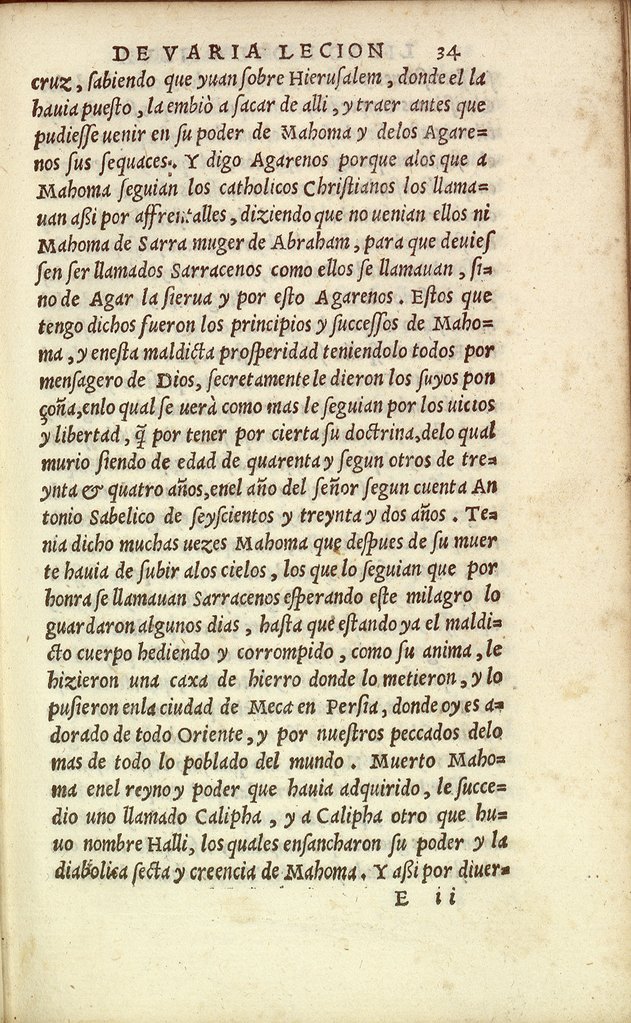 DE VARIA LECION 34
cruz, ſabiendo que yuan ſobre Hieruſalem, donde el la
hauia pueſto, la embiò a ſacar de alli, y traer antes que
pudieſſe uenir en ſu poder de Mahoma y delos Agare=
nos ſus ſequaces. Y digo Agarenos porque alos que a
Mahoma ſeguian los catholicos Chriſtianos los llama=
uan aßi por affrentalles, diziendo que no uenian ellos ni
Mahoma de Sarra muger de Abraham, para que deuieſ
ſen ſer llamados Sarracenos como ellos ſe llamauan, ſi=
no de Agar la ſierua y por eſto Agarenos. Eſtos que
tengo dichos fueron los principios y ſucceſſos de Maho=
ma, y eneſta maldicta proſperidad teniendolo todos por
menſagero de Dios, ſecretamente le dieron los ſuyos pon
çoña, enlo qual ſe uerà como mas le ſeguian por los uicios
y libertad, q̃ por tener por cierta ſu doctrina, delo qual
murio ſiendo de edad de quarenta y ſegun otros de tre=
ynta & quatro años, enel año del ſeñor ſegun cuenta An
tonio Sabelico de ſeyſcientos y treynta y dos años. Te=
nia dicho muchas uezes Mahoma que deſpues de ſu muer
te hauia de ſubir alos cielos, los que lo ſeguian que por
honra ſe llamauan Sarracenos eſperando eſte milagro lo
guardaron algunos dias, haſta que eſtando ya el maldi=
cto cuerpo hediendo y corrompido, como ſu anima, le
hizieron una caxa de hierro donde lo metieron, y lo
puſieron enla ciudad de Meca en Perſia, donde oy es a=
dorado de todo Oriente, y por nueſtros peccados delo
mas de todo lo poblado del mundo. Muerto Maho=
ma enel reyno y poder que hauia adquirido, le ſucce=
dio uno llamado Calipha, y a Calipha otro que hu=
uo nombre Halli, los quales enſancharon ſu poder y la
diabolica ſecta y creencia de Mahoma. Y aßi por diuer=
E ii